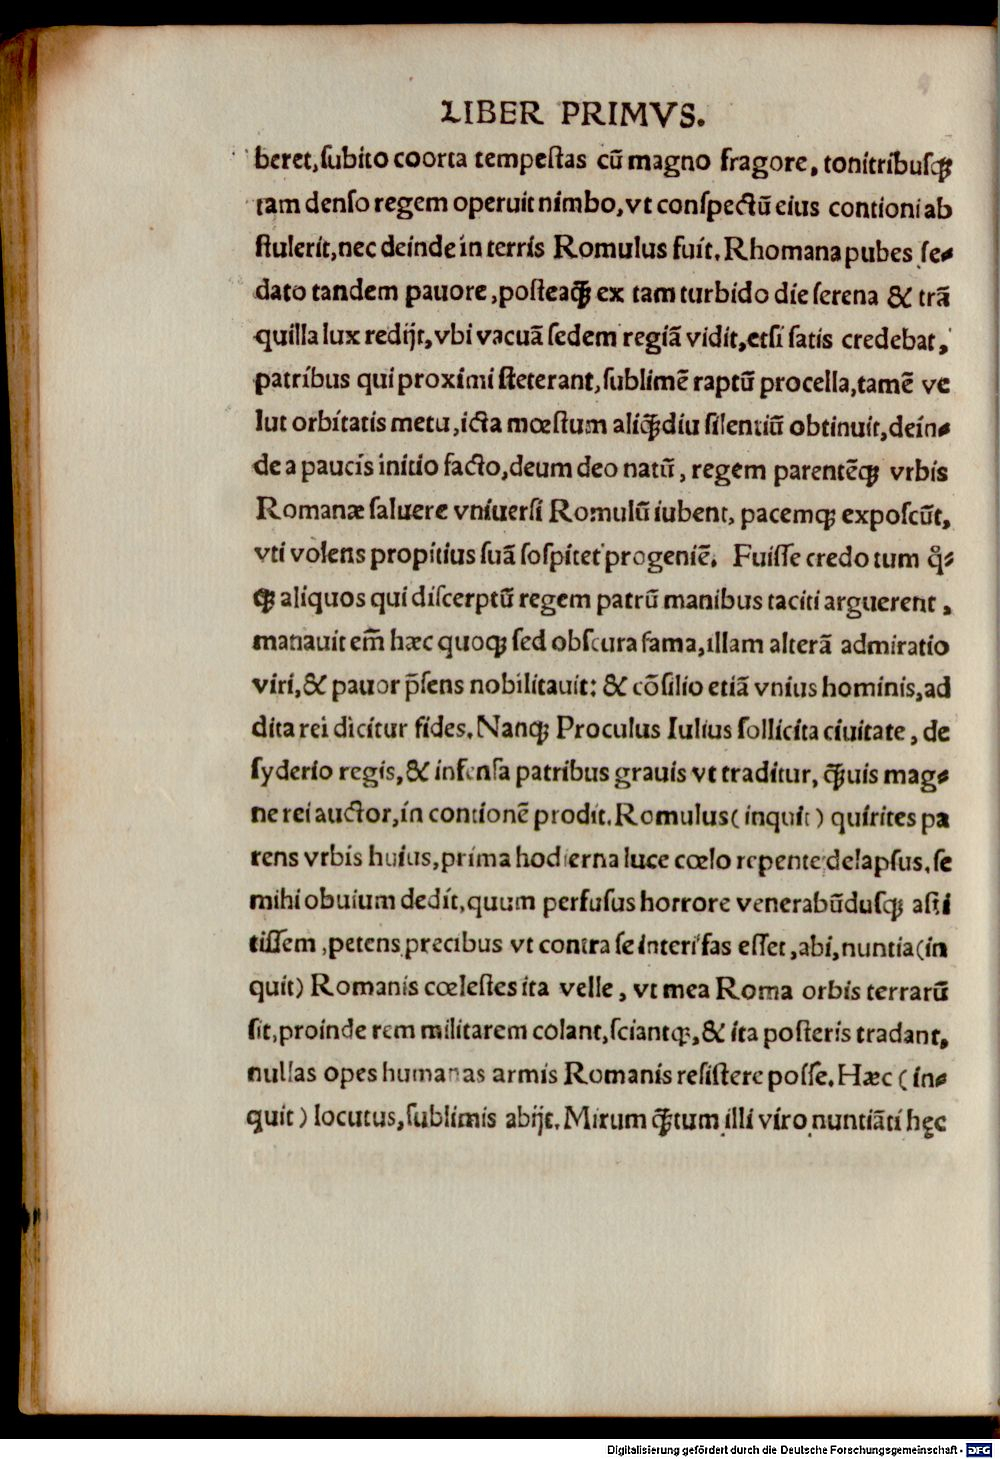 LIBER PRIMVS.
beret,ſubito coorta tempeſtas cū magno fragore, tonitribuſqꝫ
tam denſo regem operuit nimbo,vt conſpectū eius contioni ab
ſtulerit,nec deinde in terris Romulus fuit.Rhomana pubes ſe-
dato tandem pauore,poſteaꝙ̃ ex tam turbido die ſerena & trā
quilla lux redijt,vbi vacuā ſedem regiā vidit,etſi ſatis credebat,
patribus qui proximi ſteterant,ſublimē raptū procella,tamē ve
lut orbitatis metu,icta mœſtum aliꝙ̃diu ſilentiū obtinuit,dein-
de a paucis initio facto,deum deo natū, regem parentēqꝫ vrbis
Romanæ ſaluere vniuerſi Romulū iubent, pacemqꝫ expoſcūt,
vti volens propitius ſuā ſoſpitet progeniē. Fuiſſe credo tum q̊-
qꝫ aliquos qui diſcerptū regem patrū manibus taciti arguerent,
manauit em̄ hæc quoqꝫ ſed obſcura fama,illam alterā admiratio
viri,& pauor p̄ſens nobilitauit: & cōſilio etiā vnius hominis,ad
dita rei dicitur fides.Nanqꝫ Proculus Iulius ſollicita ciuitate, de
ſyderio regis,& infenſa patribus grauis vt traditur, ꝙ̃uis mag-
ne rei auctor,in contionē prodit.Romulus(inquit) quirites pa
rens vrbis huius,prima hodierna luce cœlo repente delapſus,ſe
mihi obuium dedit,quum perfuſus horrore venerabūduſqꝫ aſti
tiſſem,petens precibus vt contra ſe interi fas eſſet,abi,nuntia(in
quit) Romanis cœleſtes ita velle, vt mea Roma orbis terrarū
ſit,proinde rem militarem colant,ſciantqꝫ,& ita poſteris tradant,
nullas opes humanas armis Romanis reſiſtere poſſe.Hæc (in-
quit) locutus,ſublimis abijt.Mirum ꝙ̃tum illi viro nuntiāti hęc
Digitalisierung gefördert durch die Deutsche Forschungsgemeinschaft - DFG